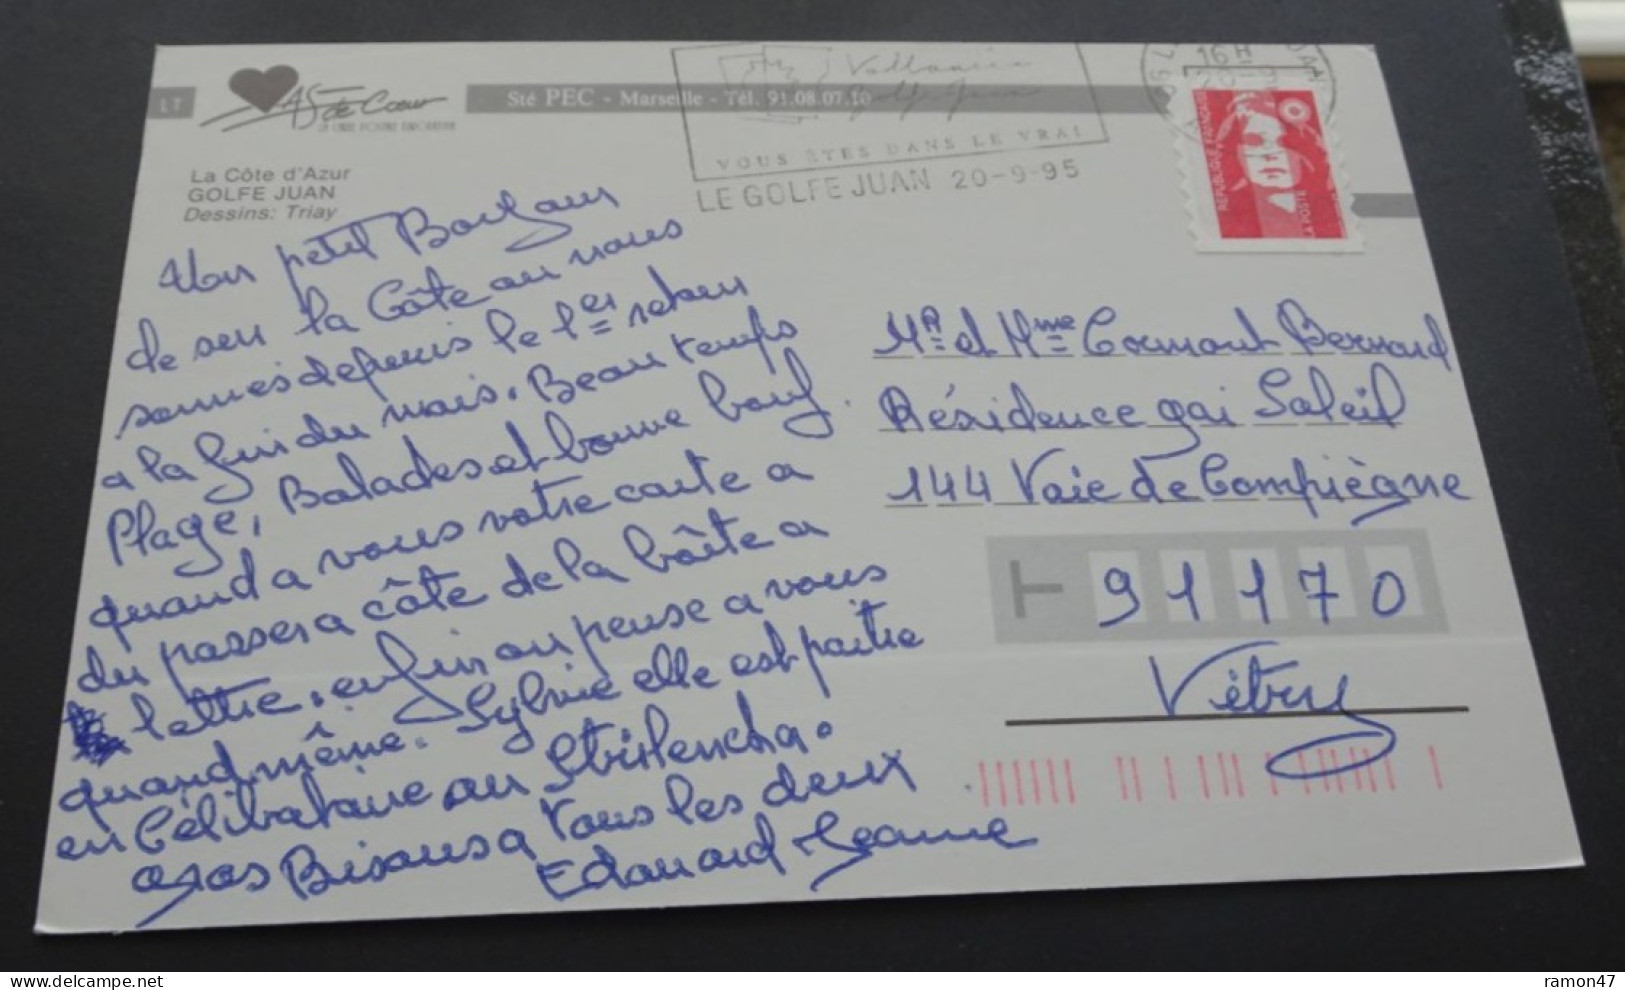 LT
AS de Cœur
LA CARTE POSTALE EUROPÉENNE
Sté PEC - Marseille - Tél. 91.08.07.10
Vallauris
Golfe Juan
VOUS ÊTES DANS LE VRAI
LE GOLFE JUAN 20-9-95
16 H
REPUBLIQUE FRANÇAISE
LA POSTE
La Côte d'Azur
GOLFE JUAN
Dessins: Triay
Un petit Bonjour
de sur la Côte ou nous
sommes depuis le 1er retour
a la fin du mois. Beau temps
Plage, Balades et bonne bouf.
quand a vous votre carte a
du passer a côte de la boîte a
lettre. enfin on pense a vous
quand même. Sylvie elle est partie
en Célibataire au
gros Bisous a Vous les deux
Edouard Jeanne
Mr et Mme Cormont Bernard
Résidence gai Soleil
144 Voie de Compiègne
91170
Vitry
ramon47